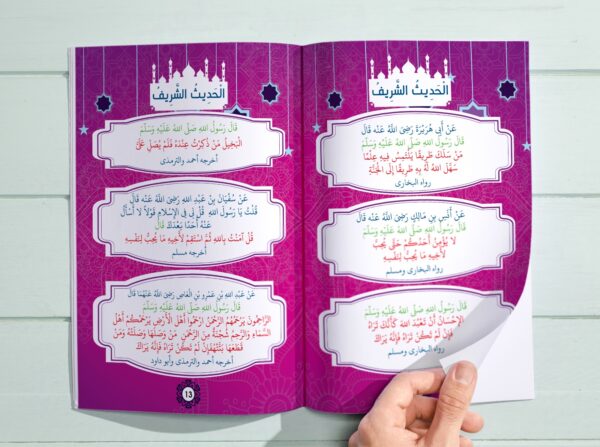 الْحَدِيثُ الشَّرِيفُ
عَنْ أَبِي هُرَيْرَةَ رَضِيَ اللهُ عَنْهُ قَالَ
قَالَ رَسُولُ اللهِ صَلَّى اللهُ عَلَيْهِ وَسَلَّمَ
مَنْ سَلَكَ طَرِيقًا يَلْتَمِسُ فِيهِ عِلْمًا
سَهَّلَ اللهُ لَهُ بِهِ طَرِيقًا إِلَى الْجَنَّةِ
رواه البخارى
عَنْ أَنَسِ بنِ مَالِكٍ رَضِيَ اللهُ عَنْهُ قَالَ
قَالَ رَسُولُ اللهِ صَلَّى اللهُ عَلَيْهِ وَسَلَّمَ
لا يُؤْمِنُ أَحَدُكُمْ حَتَّى يُحِبَّ
لأَخِيهِ مَا يُحِبُّ لِنَفْسِهِ
رواه البخارى ومسلم
قَالَ رَسُولُ اللهِ صَلَّى اللهُ عَلَيْهِ وَسَلَّمَ
الإِحْسَانُ أَنْ تَعْبُدَ اللهَ كَأَنَّكَ تَرَاهُ
فَإِنْ لَمْ تَكُنْ تَرَاهُ فَإِنَّهُ يَرَاكَ
رواه البخارى ومسلم
الْحَدِيثُ الشَّرِيفُ
قَالَ رَسُولُ اللهِ صَلَّى اللهُ عَلَيْهِ وَسَلَّمَ
الْبَخِيلُ مَنْ ذُكِرْتُ عِنْدَهُ فَلَمْ يُصَلِّ عَلَيَّ
أخرجه أحمد والترمذى
عَنْ سُفْيَانَ بنِ عَبْدِ اللهِ رَضِيَ اللهُ عَنْهُ قَالَ
قُلْتُ يَا رَسُولَ اللهِ قُلْ لِي فِي الإِسْلَامِ قَوْلاً لَا أَسْأَلُ
عَنْهُ أَحَدًا بَعْدَكَ قَالَ
قُلْ آمَنْتُ بِاللهِ ثُمَّ اسْتَقِمْ لأَخِيهِ مَا يُحِبُّ لِنَفْسِهِ
أخرجه مسلم
عَنْ عَبْدِ اللهِ بْنِ عَمْرِو بْنِ الْعَاصِ رَضِيَ اللهُ عَنْهُمَا قَالَ
قَالَ رَسُولُ اللهِ صَلَّى اللهُ عَلَيْهِ وَسَلَّمَ
الرَّاحِمُونَ يَرْحَمُهُمُ الرَّحْمَنُ ارْحَمُوا أَهْلَ الأَرْضِ يَرْحَمْكُمْ أَهْلُ
السَّمَاءِ وَالرَّحِمُ شُجْنَةٌ مِنَ الرَّحْمَنِ مَنْ وَصَلَهَا وَصَلَتْهُ وَمَنْ
قَطَعَهَا بَتَتْهُ فَإِنْ لَمْ تَكُنْ تَرَاهُ فَإِنَّهُ يَرَاكَ
أخرجه أحمد والترمذى وأبو داود
13